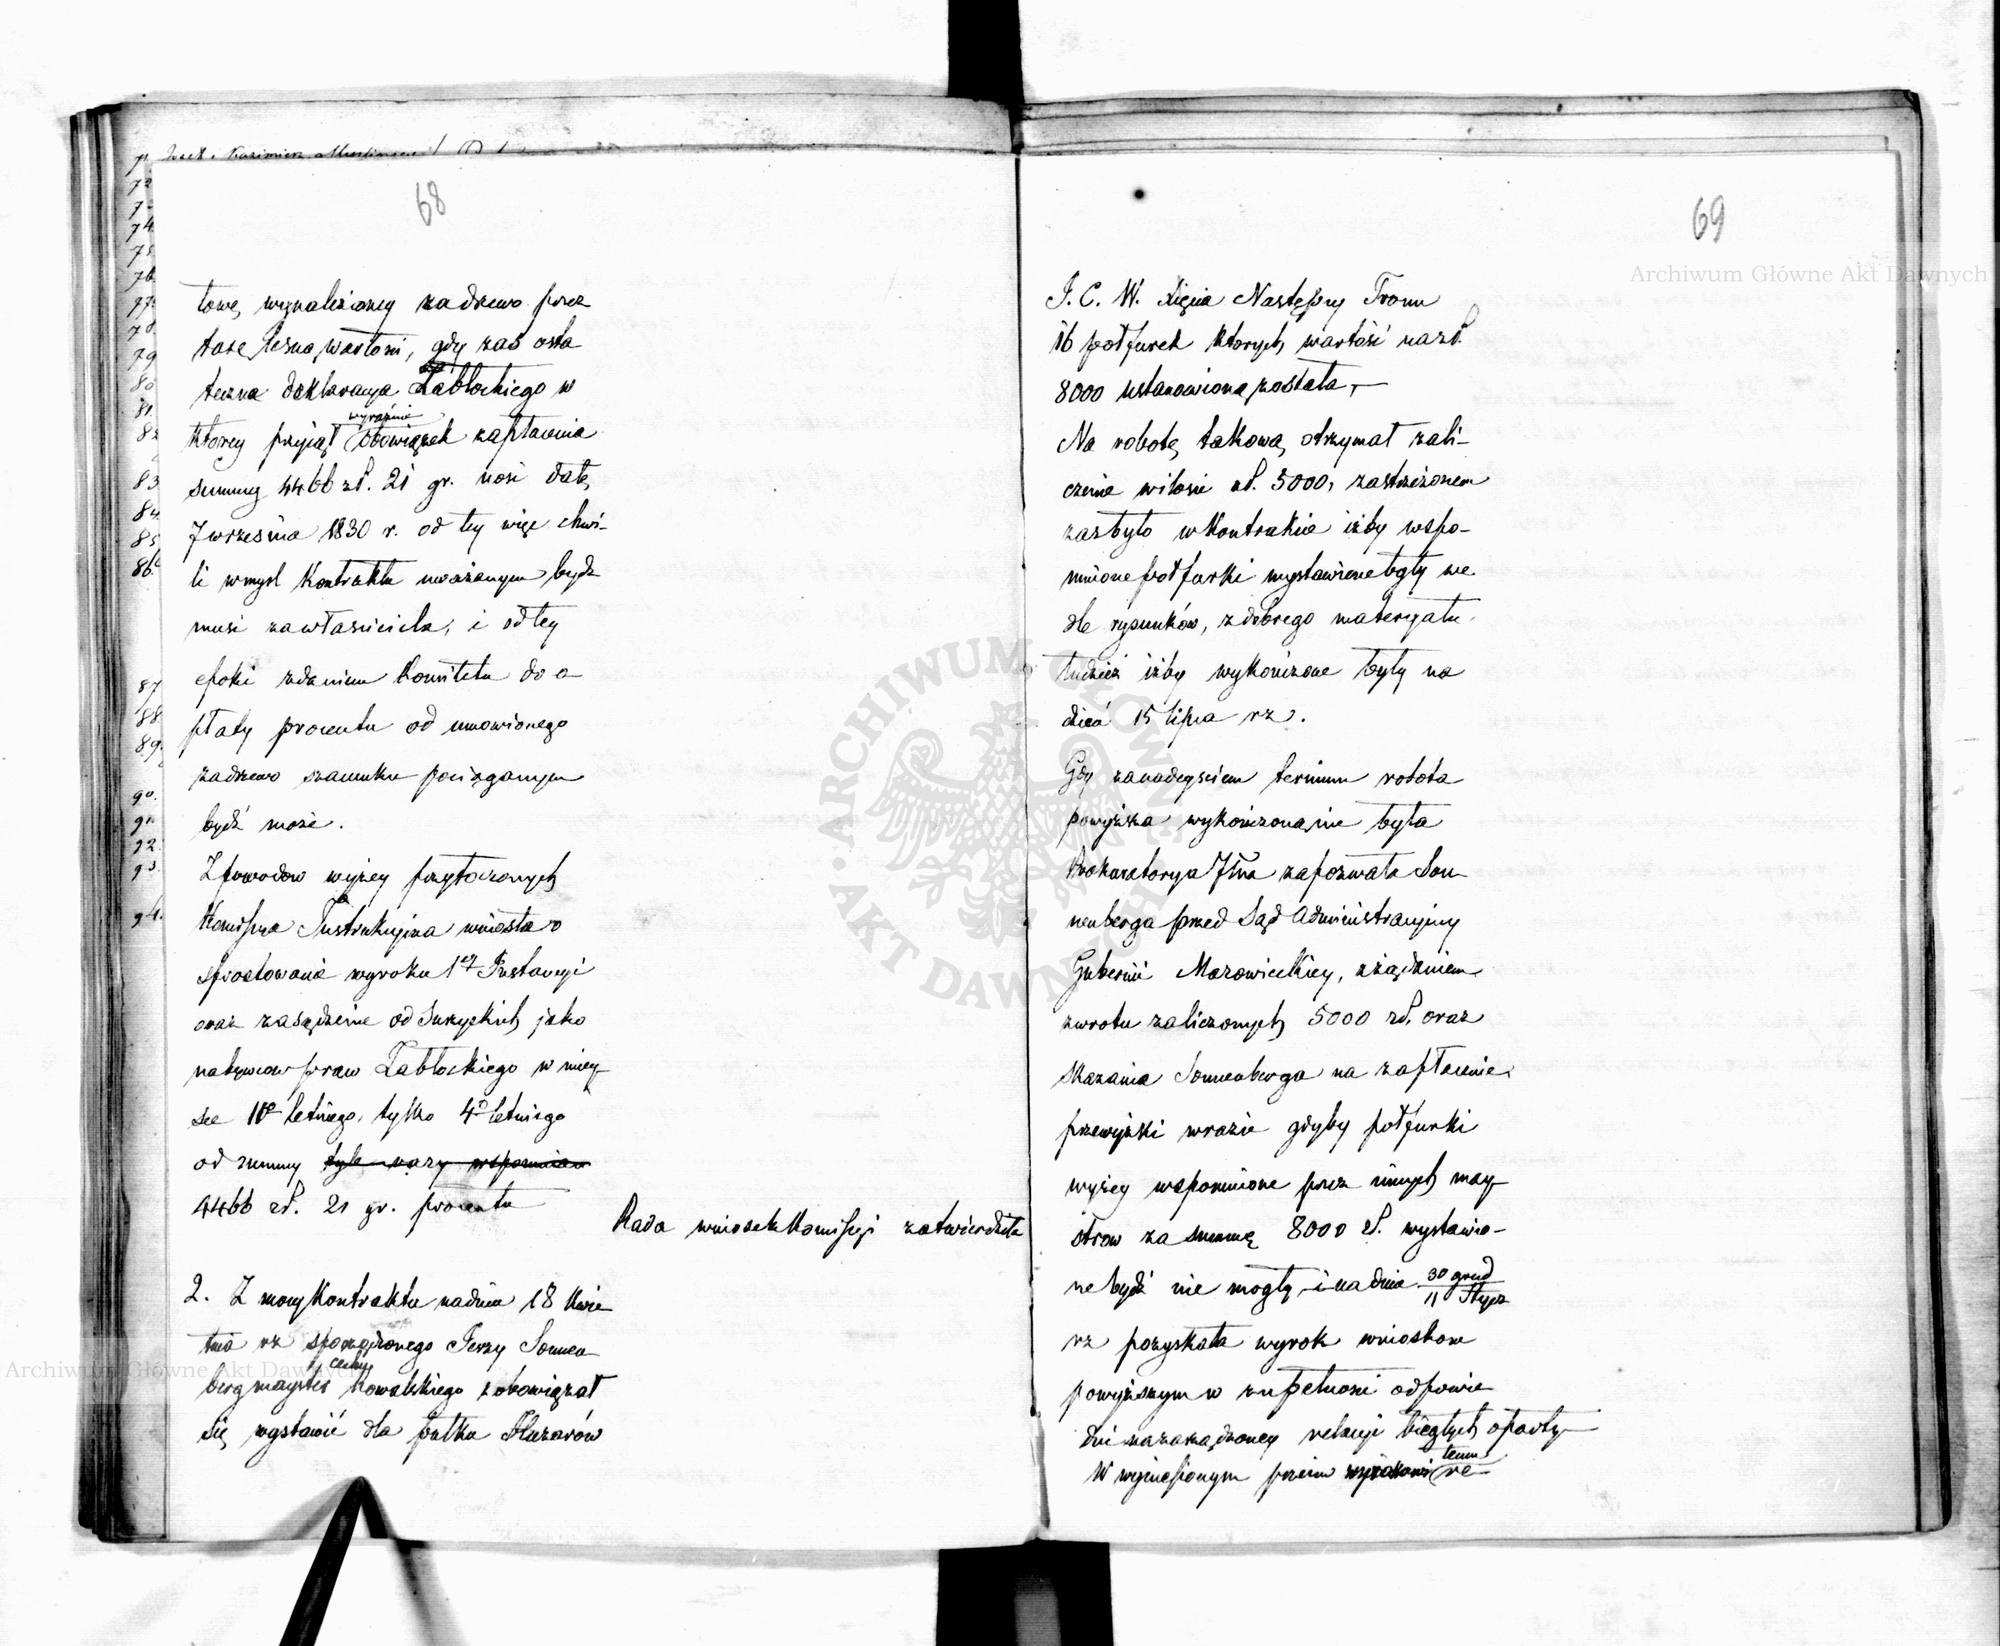 68
towę wynalezioney za drzewo przez
taxę leśną wartości, gdy zaś osta
teczna deklaracya Zabłockiego w
którey przyjął wyraźnie obowiązek zapłacenia
summy 4466 zł. 21 gr. nosi datę
7 września 1830 r. od tey więc chwi-
li w mysl Kontraktu uważanym bydź
musi za właściciela, i od tey
epoki zdaniem Komitetu do o
płaty procentu od umowionego
za drzewo szacunku pociąganym
bydź może.
Z powodow wyżey przytoczonych
Komissya Instrukcyjna wniosła o
sprostowanie wyroku 1ey Instancyi
oraz zasądzenie od Suryckich jako
nabywcow praw Zabłockiego w miey-
sce 10o letniego, tylko 4o letniego
od summy tyle razy wspomnian
4466 zł. 21 gr. procentu
Rada wniosek Komissyi zatwierdziła
2. Z mocy Kontraktu na dniu 18 Kwie
tnia rz sporządzonego Jerzy Sonnen
berg mayster cechu Kowalskiego zobowiązał
się wystawić dla pułku Huzarów
69
J. C. W. Xięcia Następcy Tronu
16 półfurek których wartość na zł.
8000 ustanowioną została,—
Na robotę takową otrzymał zali-
czenie w ilości zł. 5000, zastrzeżonem
zaś było w Kontrakcie iżby wspo-
mnione półfurki wystawione były we
dle rysunków, z dobrego materyału
tudzież iżby wykończone były na
dzień 15 lipca rz.
Gdy za nadeyściem terminu robota
powyższa wykończoną nie była
Prokuratorya Jlna zapozwała Son
nenberga przed Sąd Administracyiny
Gubernii Mazowieckiey, z żądaniem
zwrotu zaliczonych 5000 zł. oraz
skazania Sonnenberga na zapłacenie
przewyżki w razie gdyby półfurki
wyżey wspomnione przez innych may
strow za summę 8000 zł. wystawio-
ne bydź nie mogły, i na dniu 30 grud / 11 Stycz
rz pozyskała wyrok wnioskom
powyższym w zupełności odpowie
dni na zarządzoney relacyi biegłych oparty—
W wyniesionym przeciw wyrokowi temu re-
Archiwum Główne Akt Dawnych
Archiwum Główne Akt Dawnych
ARCHIWUM GŁÓWNE AKT DAWNYCH